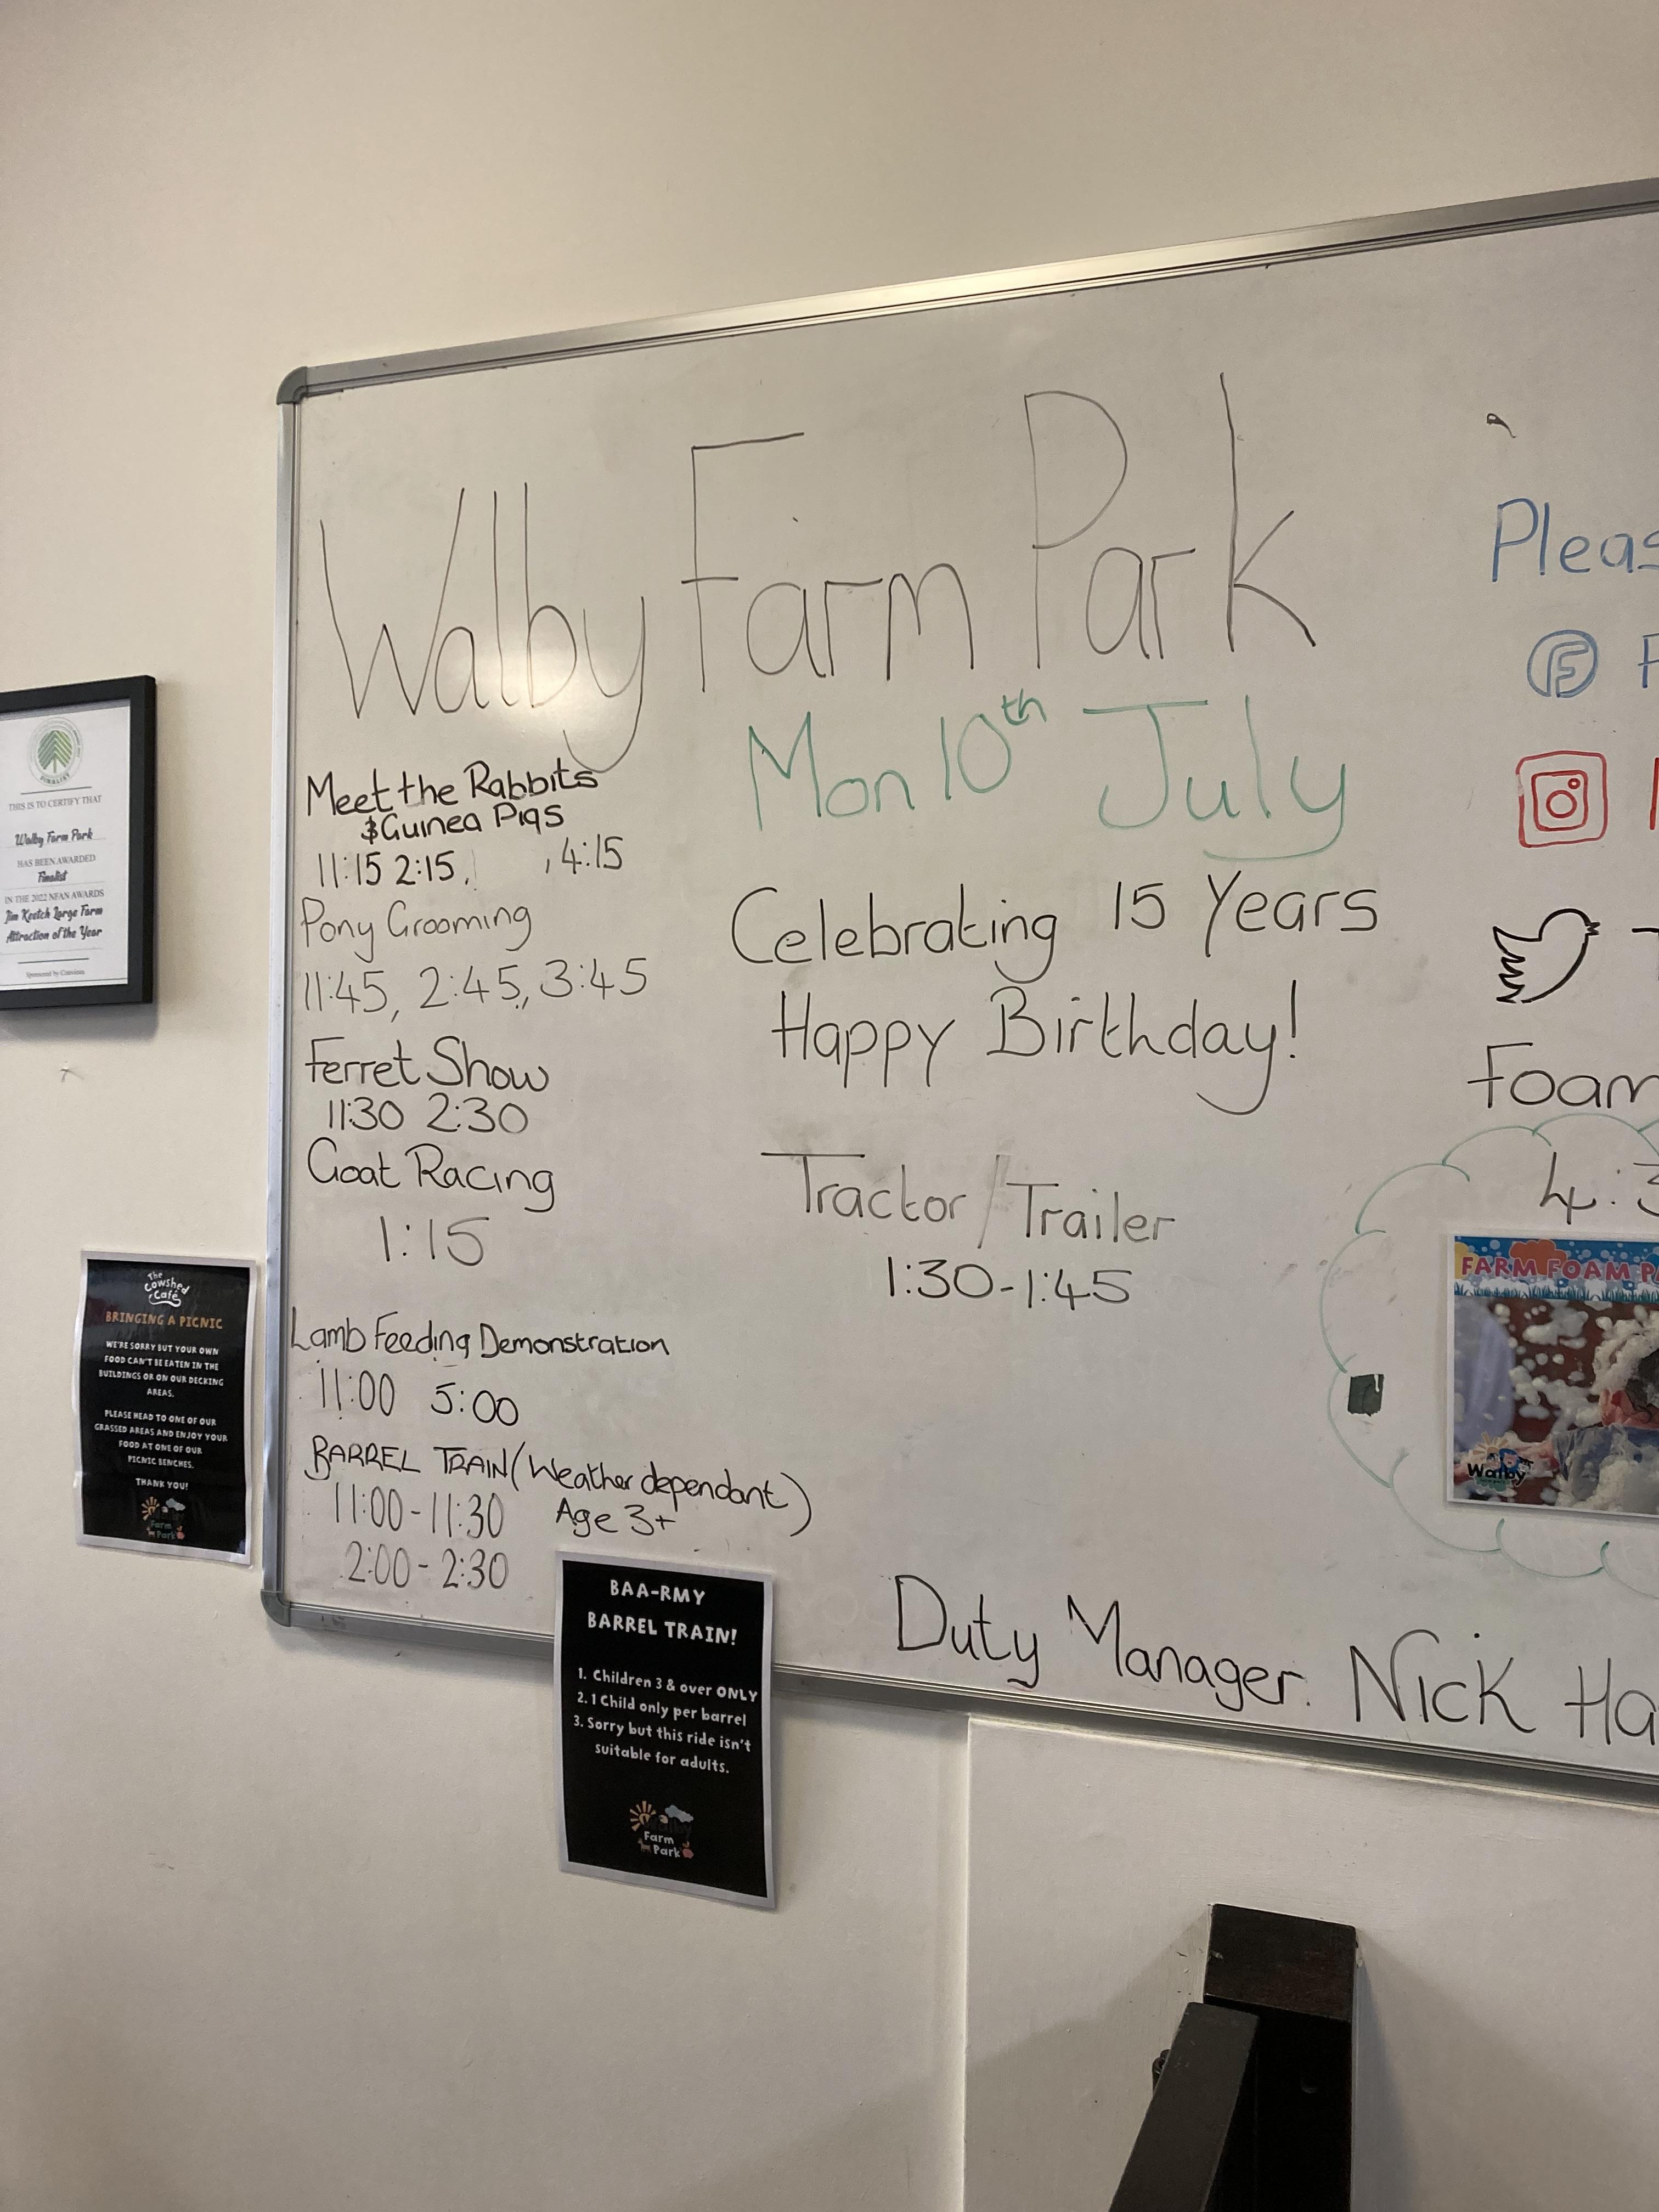 Walby Farm Park
Mon 10th July
Meet the Rabbits
& Guinea Pigs
11:15 2:15, , 4:15
Pony Grooming
11:45, 2:45, 3:45
Ferret Show
11:30 2:30
Goat Racing
1:15
Lamb Feeding Demonstration
11:00 5:00
BARREL TRAIN (Weather dependant)
11:00-11:30 Age 3+
2:00-2:30
Celebrating 15 Years
Happy Birthday!
Tractor/Trailer
1:30-1:45
Duty Manager. Nick Ha
Pleas
F
Foam
4:3
FARM FOAM PA
Walby
FINALIST
THIS IS TO CERTIFY THAT
Walby Farm Park
HAS BEEN AWARDED
Finalist
IN THE 2022 NFAN AWARDS
Jim Keetch Large Farm
Attraction of the Year
The
Cowshed
Café
BRINGING A PICNIC
WE'RE SORRY BUT YOUR OWN
FOOD CAN'T BE EATEN IN THE
BUILDINGS OR ON OUR DECKING
AREAS.
PLEASE HEAD TO ONE OF OUR
GRASSED AREAS AND ENJOY YOUR
FOOD AT ONE OF OUR
PICNIC BENCHES.
THANK YOU!
Farm
Park
BAA-RMY
BARREL TRAIN!
1. Children 3 & over ONLY
2. 1 Child only per barrel
3. Sorry but this ride isn't
suitable for adults.
Walby
Farm
Park